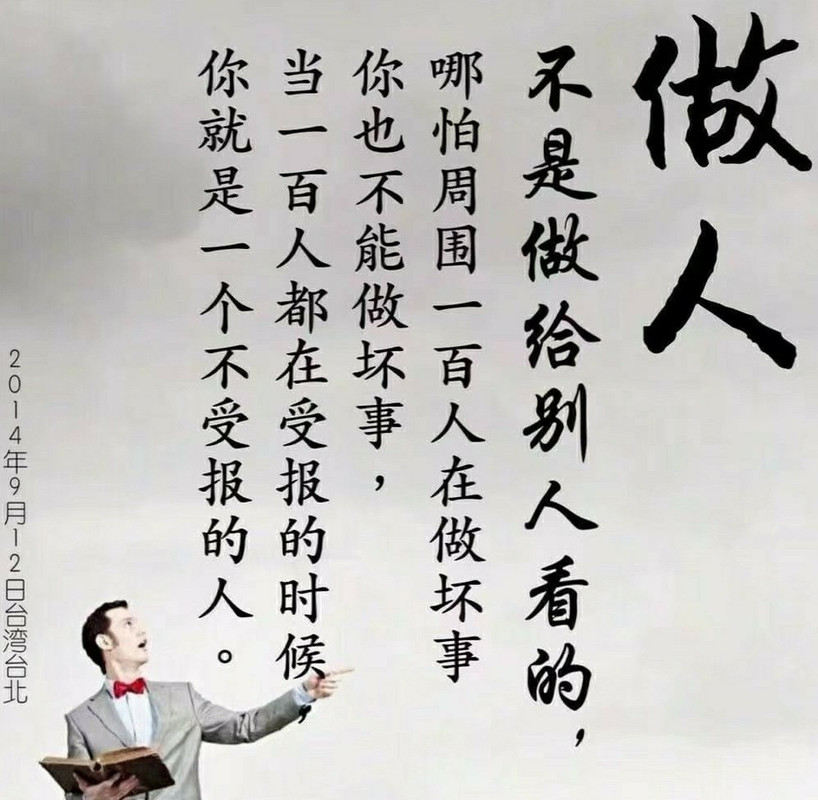 做人
不是做给别人看的，
哪怕周围一百人在做坏事
你也不能做坏事，
当一百人都在受报的时候，
你就是一个不受报的人。
2014年9月12日台湾台北